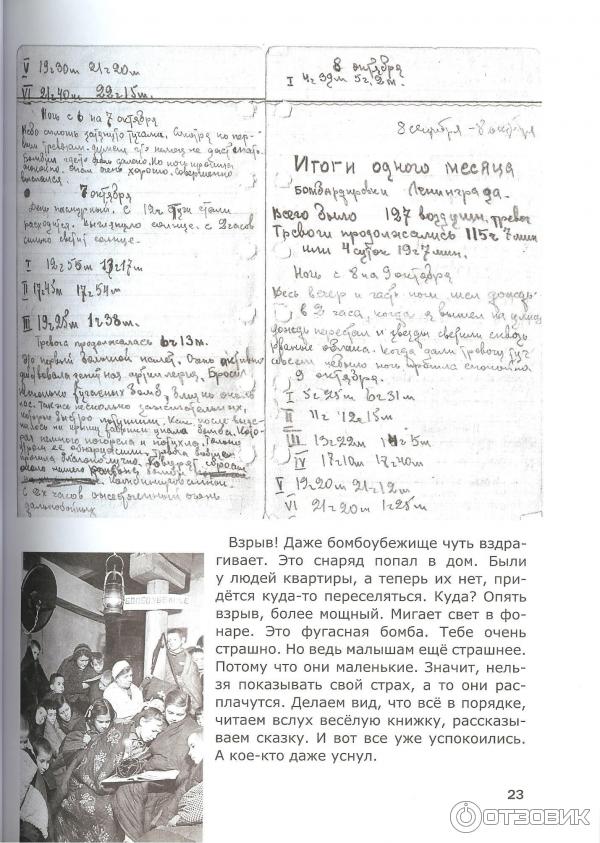 V 19ч30м 21ч20м
VI 21ч40м 22ч15м.
Ночь с 6 на 7 октября
Небо сплошь затянуто тучами.
спокойно. Спал очень хорошо. Совершенно
7 октября
День пасмурный. С 12ч тучи стали
расходится. Выглянуло солнце. с 2 часов
сильно светит солнце.
I 12ч55м 13ч17м
II 17ч45м 17ч54м
III 19ч25м 1ч38м.
Тревога продолжалась 6ч13м.
Это первый большой налет. Очень
действовала зенитная артиллерия.
несколько фугасных бомб, близко около
нас. Также несколько зажигательных,
которые быстро потушили.
на крышу упала бомба.
немного погорела и потухла. Только
утром ее обнаружили. Тревога
С 2х часов
дальнобойных
8 октября
I 4ч39м 5ч,2м.
8 сентября - 8 октября
Итоги одного месяца
бомбардировки Ленинграда.
Всего было 127 воздушн. тревог
Тревоги продолжались 115ч7мин
или 4 суток 19ч7мин.
Ночь с 8 на 9 октября
Весь вечер и часть ночи шел дождь
в 2 часа, когда я вышел на улицу
дождь перестал и звезды светили сквозь
рваные облака. Когда дали тревогу туч
совсем не было ночь прошла спокойно
9 октября.
I 5ч25м 6ч31м
II 11ч 12ч15м
III 13ч22м 14ч5м
IV 17ч10м 17ч40м
V 19ч20м 21ч12м
VI 21ч20м 1ч25м
БОМБОУБЕЖИЩЕ
Взрыв! Даже бомбоубежище чуть вздра-
гивает. Это снаряд попал в дом. Были
у людей квартиры, а теперь их нет, при-
дётся куда-то переселяться. Куда? Опять
взрыв, более мощный. Мигает свет в фо-
наре. Это фугасная бомба. Тебе очень
страшно. Но ведь малышам ещё страшнее.
Потому что они маленькие. Значит, нель-
зя показывать свой страх, а то они рас-
плачутся. Делаем вид, что всё в порядке,
читаем вслух весёлую книжку, рассказы-
ваем сказку. И вот все уже успокоились.
А кое-кто даже уснул.
23
ОТЗОВИК